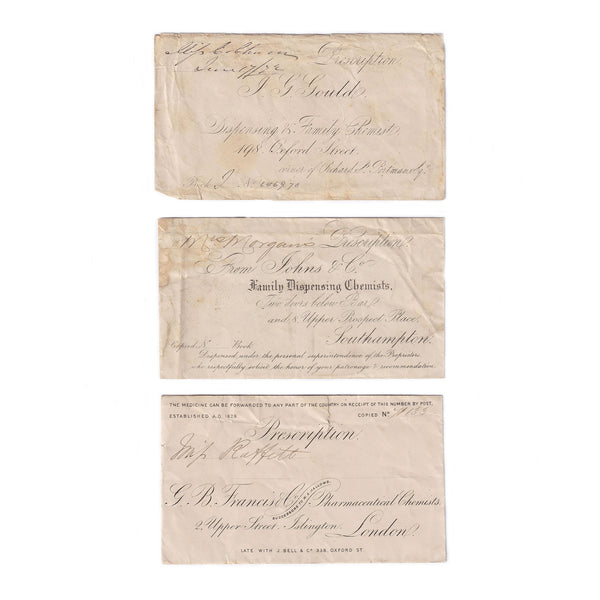 Miss
June
Prescription
J. G. Gould,
Dispensing & Family Chemist
198, Oxford Street,
corner of Richard St. Portman Sq.
Book J No
Mrs Morgan's Prescription
From Johns & Co.
Family Dispensing Chemists,
Two doors below Bar,
and 8, Upper Prospect Place,
Southampton.
Copied No Book
Dispensed under the personal superintendence of the Proprietors
who respectfully solicit the honor of your patronage & recommendation.
THE MEDICINE CAN BE FORWARDED TO ANY PART OF THE COUNTRY ON RECEIPT OF THIS NUMBER BY POST.
ESTABLISHED A.D. 1828. COPIED No
Prescription.
Miss
G. B. Francis & Co. Pharmaceutical Chemists.
2, Upper Street, Islington, London.
LATE WITH J. BELL & Co 338, OXFORD ST.